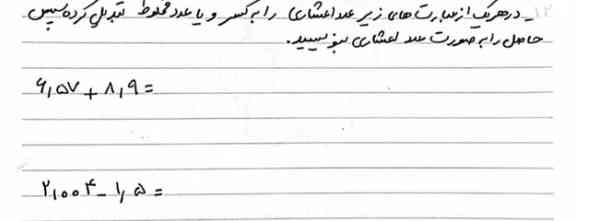 ۱۲_ درهریک از عبارت های زیر عدد اعشاری را به کسر و یا عدد مخلوط تبدیل کرده سپس
حاصل را به صورت عدد اعشاری بنویسید.
۶,۵۷ + ۸,۹ =
۲,۰۰۴ - ۱,۵ =